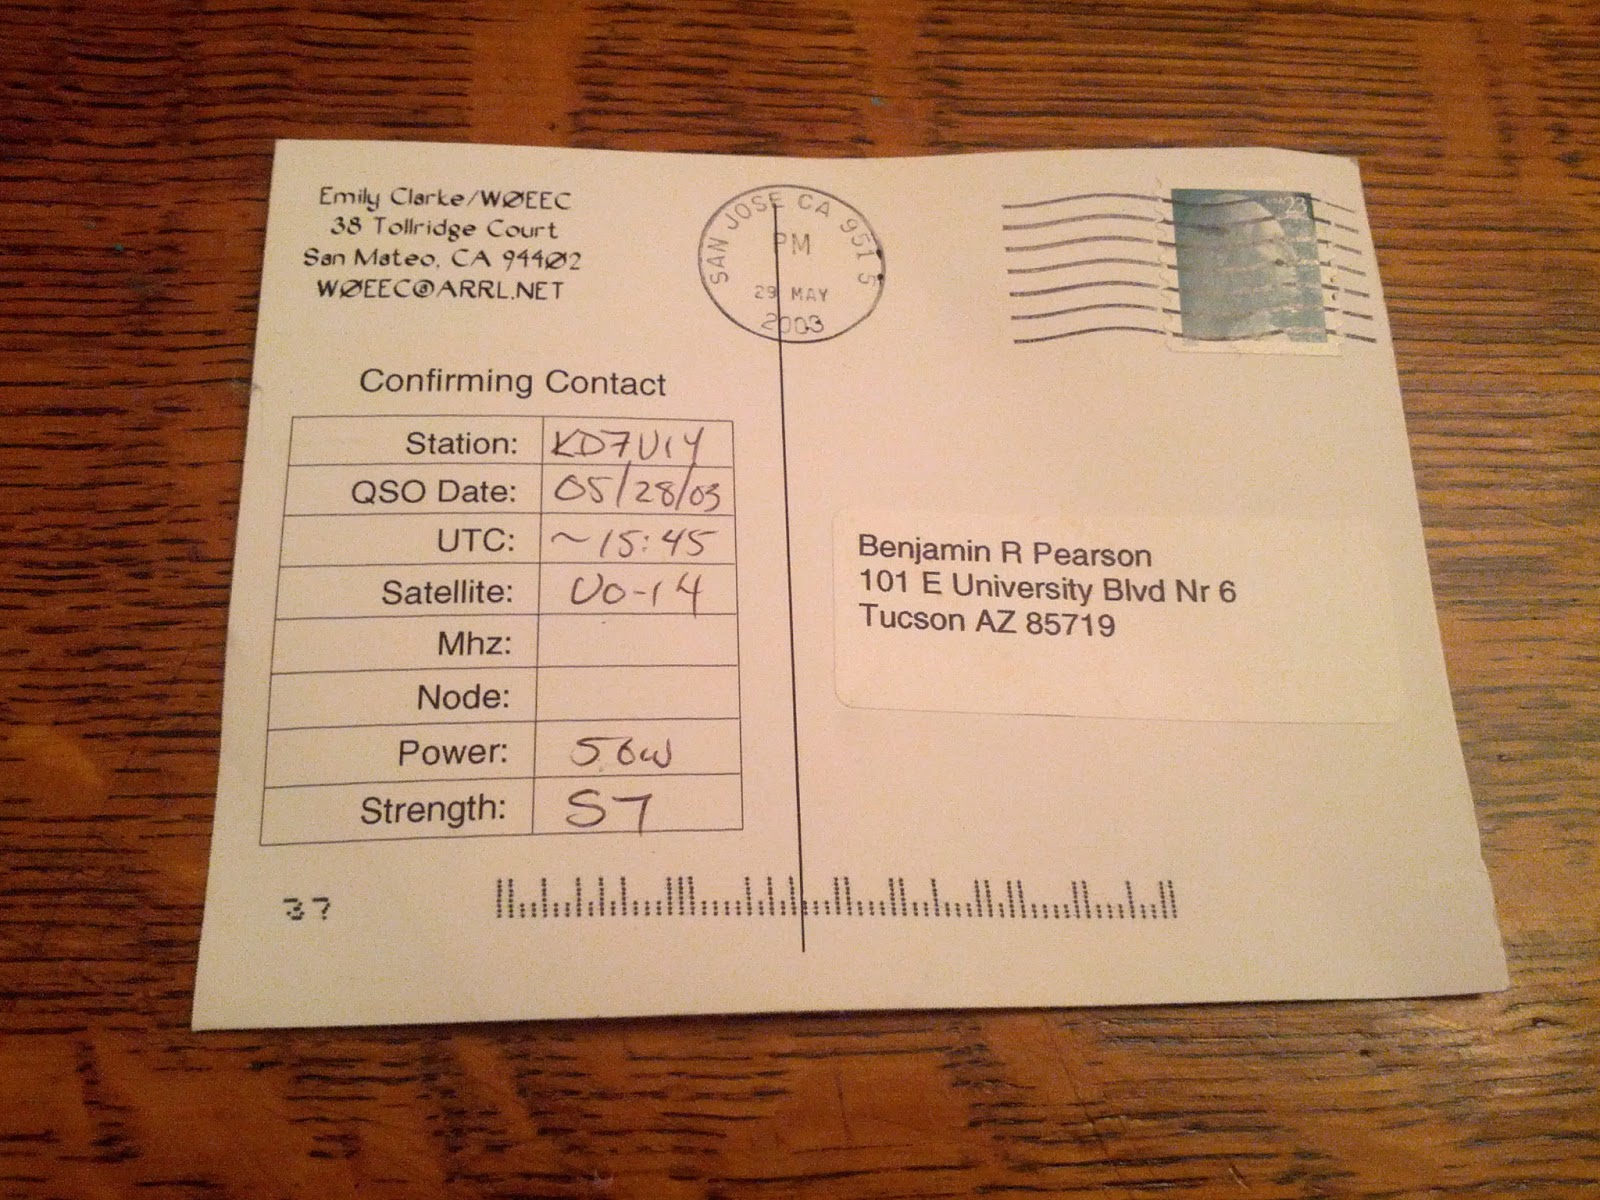 Emily Clarke/WØEEC
38 Tollridge Court
San Mateo, CA 944Ø2
WØEEC@ARRL.NET
SAN JOSE CA 951 5
PM
29 MAY
2003
23
Confirming Contact
Station: KD7UIY
QSO Date: 05/28/03
UTC: ~15:45
Satellite: UO-14
Mhz:
Node:
Power: 5.0W
Strength: S7
Benjamin R Pearson
101 E University Blvd Nr 6
Tucson AZ 85719
37